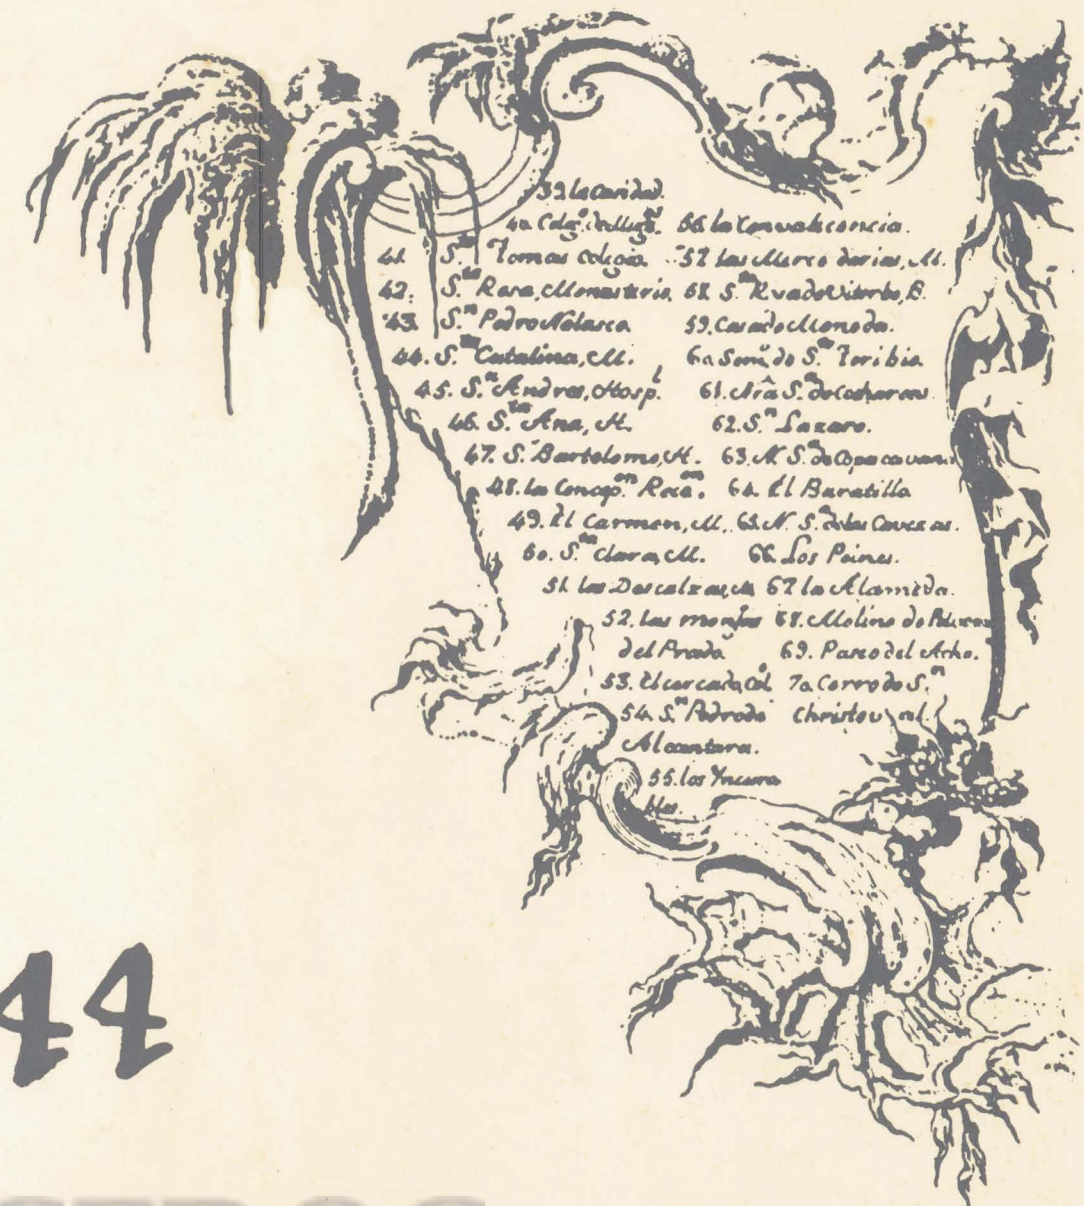 39. la Caridad.
40. Colegº. de Mugs.
41. Sto. Tomas Colegio.
42. Sta. Rosa, Monasterio.
43. Sn. Pedro Nolasco.
44. Sta. Catalina, M.
45. Sn. Andres, Hospl.
46. Sta. Ana, H.
47. S. Bartolome, H.
48. la Concepon. Recon.
49. El Carmen, M.
50. Sta. Clara, M.
51. las Descalzas, M.
52. las monjas
del Prado.
53. El cercado, Col.
54. Sn. Pedro de
Alcantara.
55. los Yncura
bles.
56. la Convalecencia.
57. las Mercedarias, M.
58. Sta. Rosa de Viterbo, B.
59. Casa de Moneda.
60. Semº. de Sto. Toribio.
61. Nra. Sa. de Cocharcas.
62. Sn. Lazaro.
63. N. Sa. de Copacavana.
64. El Baratillo.
65. N. Sa. de las Cavezas.
66. Los Peines.
67. la Alameda.
68. Molino de
69. Paseo del Acho.
70. Cerro de Sn.
Christoval
44